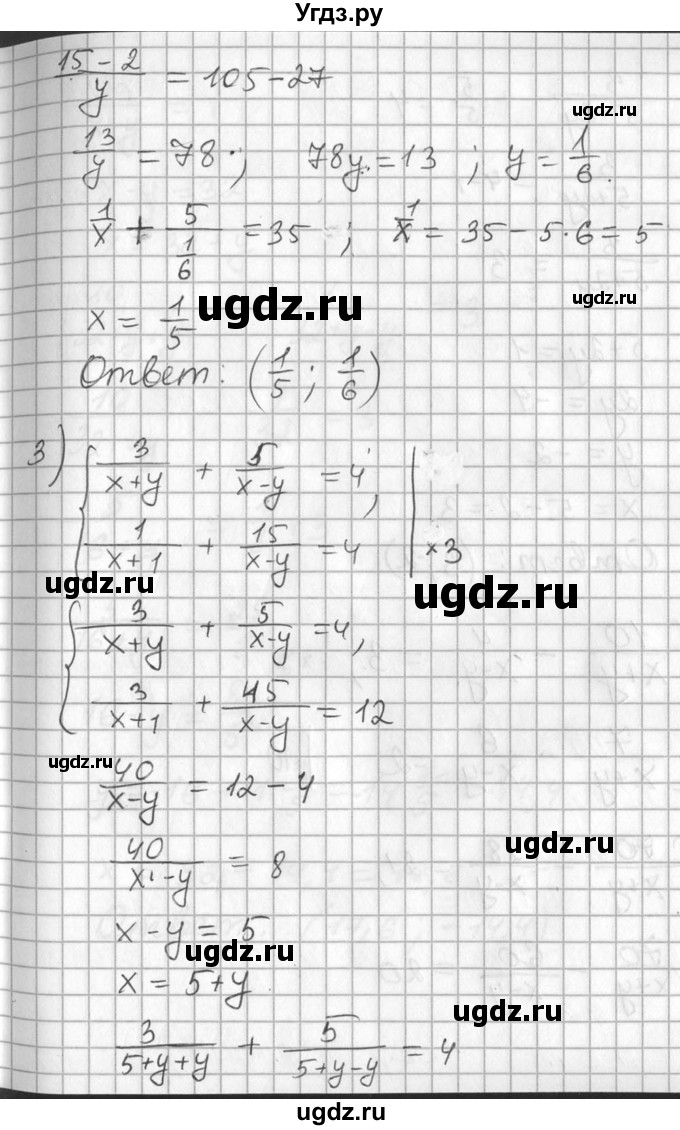 Угдз.ру
(15 - 2)/y = 105 - 27
ugdz.ru
13/y = 78; 78y = 13; y = 1/6.
1/x + 5/(1/6) = 35; 1/x = 35 - 5·6 = 5
ugdz.ru
ugdz.ru
x = 1/5
Ответ: (1/5; 1/6)
3) { 3/(x+y) + 5/(x-y) = 4,
1/(x+1) + 15/(x-y) = 4 | ×3
ugdz.ru
ugdz.ru
{ 3/(x+y) + 5/(x-y) = 4,
3/(x+1) + 45/(x-y) = 12
ugdz.ru
40/(x-y) = 12 - 4
ugdz.ru
40/(x-y) = 8
x - y = 5
ugdz.ru
x = 5 + y
ugdz.ru
3/(5+y+y) + 5/(5+y-y) = 4
ugdz.ru